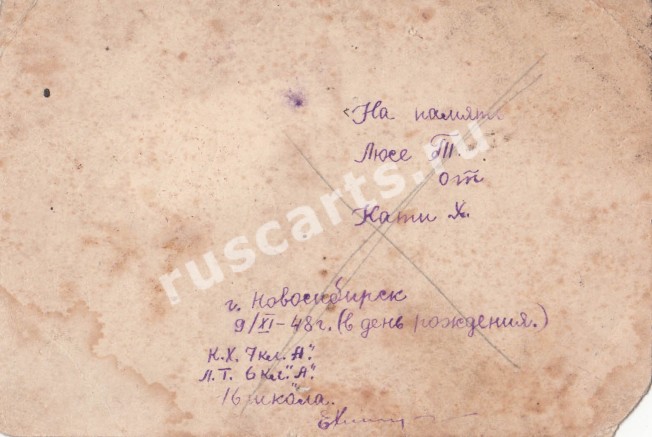 На память
Люсе Т.
от
Кати Х.
г. Новосибирск
9/XI-48г. (в день рождения.)
К.Х. 7 кл. "А".
Л.Т. 6 кл. "А".
16 школа.
ruscarts.ru